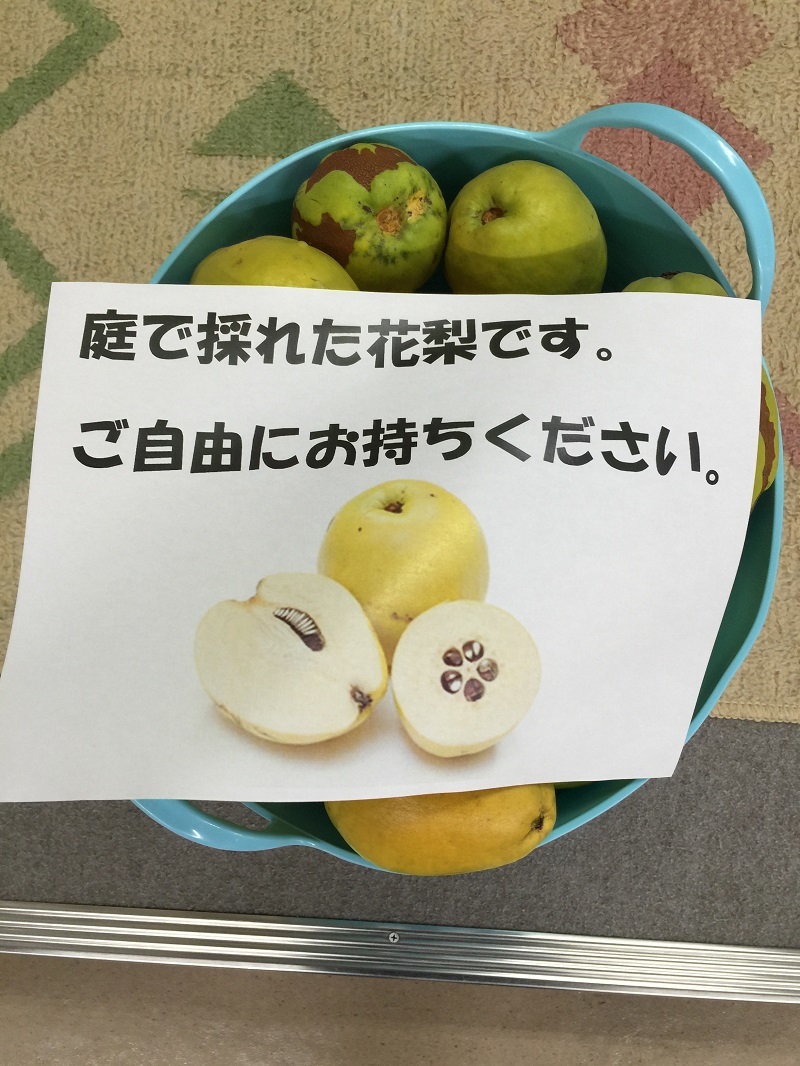 庭で採れた花梨です。
ご自由にお持ちください。